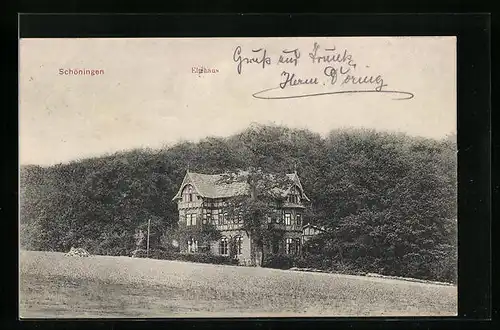 Schöningen
Elmhaus
Gruß und Trunk,
Herm. Döring